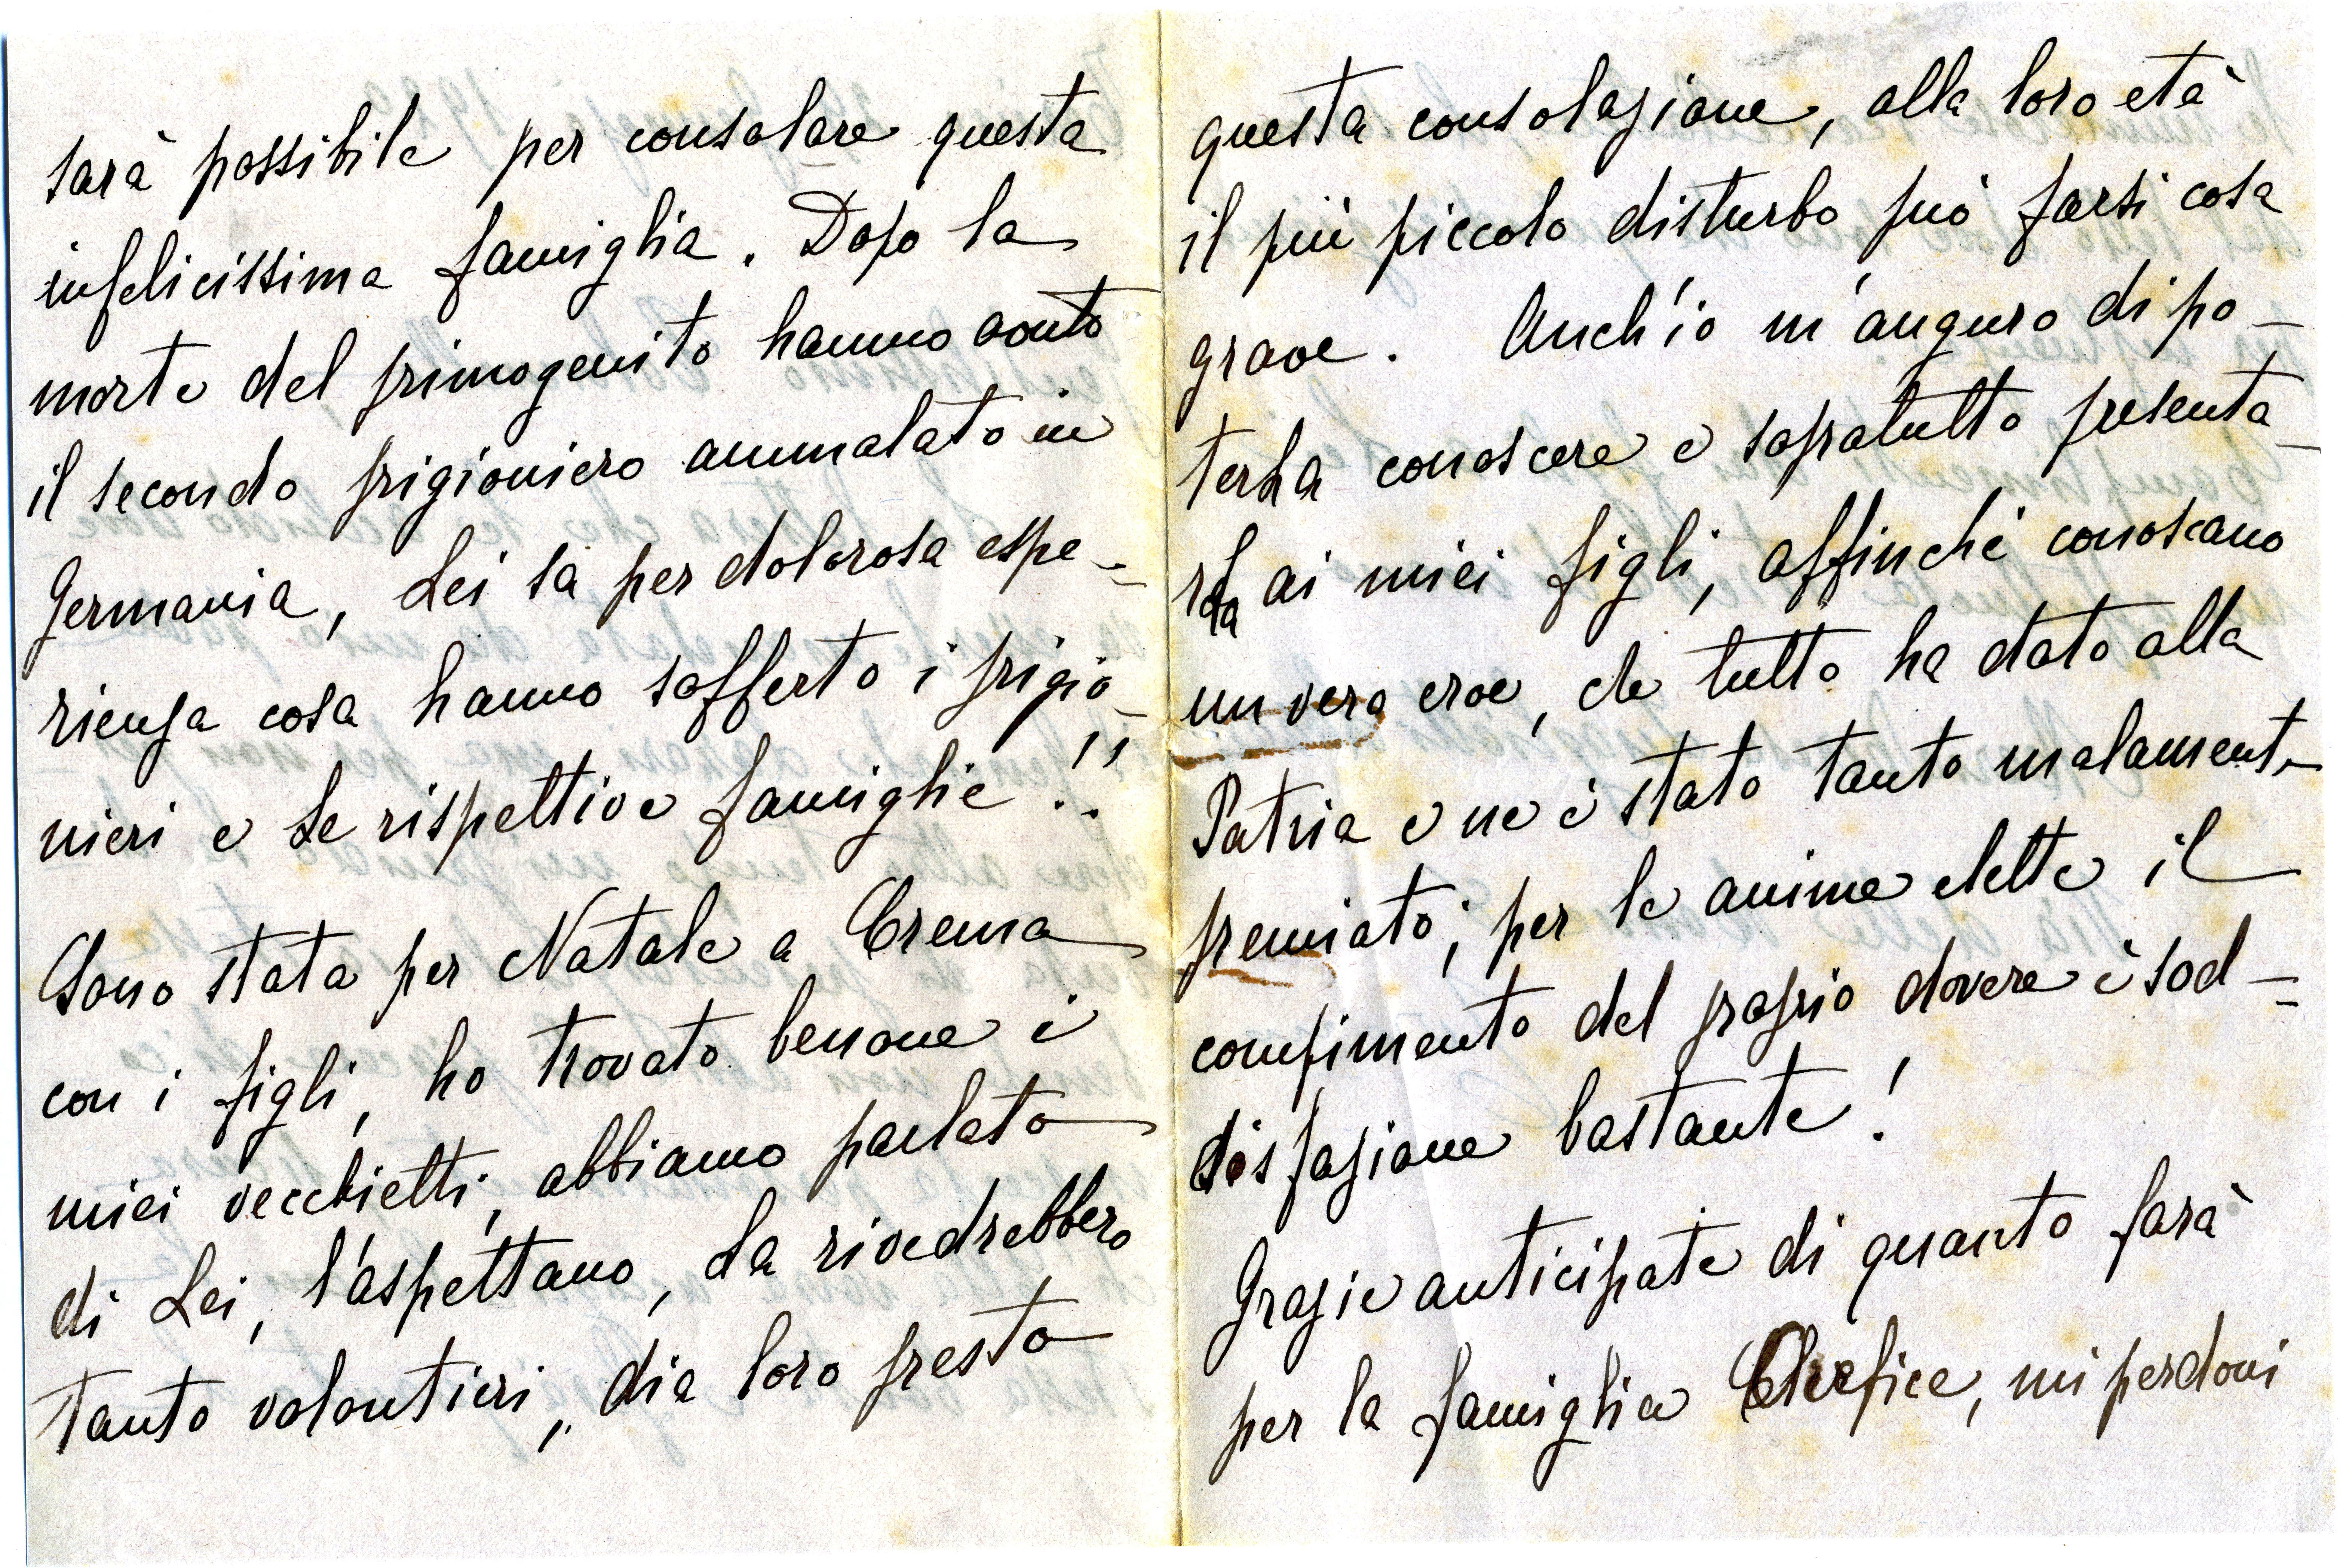 sarà possibile per consolare questa
infelicissima famiglia. Dopo la
morte del primogenito hanno avuto
il secondo prigioniero ammalato in
Germania, Lei sa per dolorosa espe-
rienza cosa hanno sofferto i prigio-
nieri e le rispettive famiglie!!
Sono stata per Natale a Crema
con i figli, ho trovato benone i
miei vecchietti, abbiamo parlato
di Lei, l'aspettano, La rivedrebbero
tanto volontieri, dia loro presto
questa consolazione, alla loro età
il più piccolo disturbo può farsi cosa
grave. Anch'io m'auguro di po-
terLa conoscere e sopratutto presenta-
rLa ai miei figli, affinché conoscano
un vero eroe, che tutto ha dato alla
Patria e ne è stato tanto malamente
premiato; per le anime elette il
compimento del proprio dovere è sod-
disfazione bastante!
Grazie anticipate di quanto farà
per la famiglia, mi perdoni